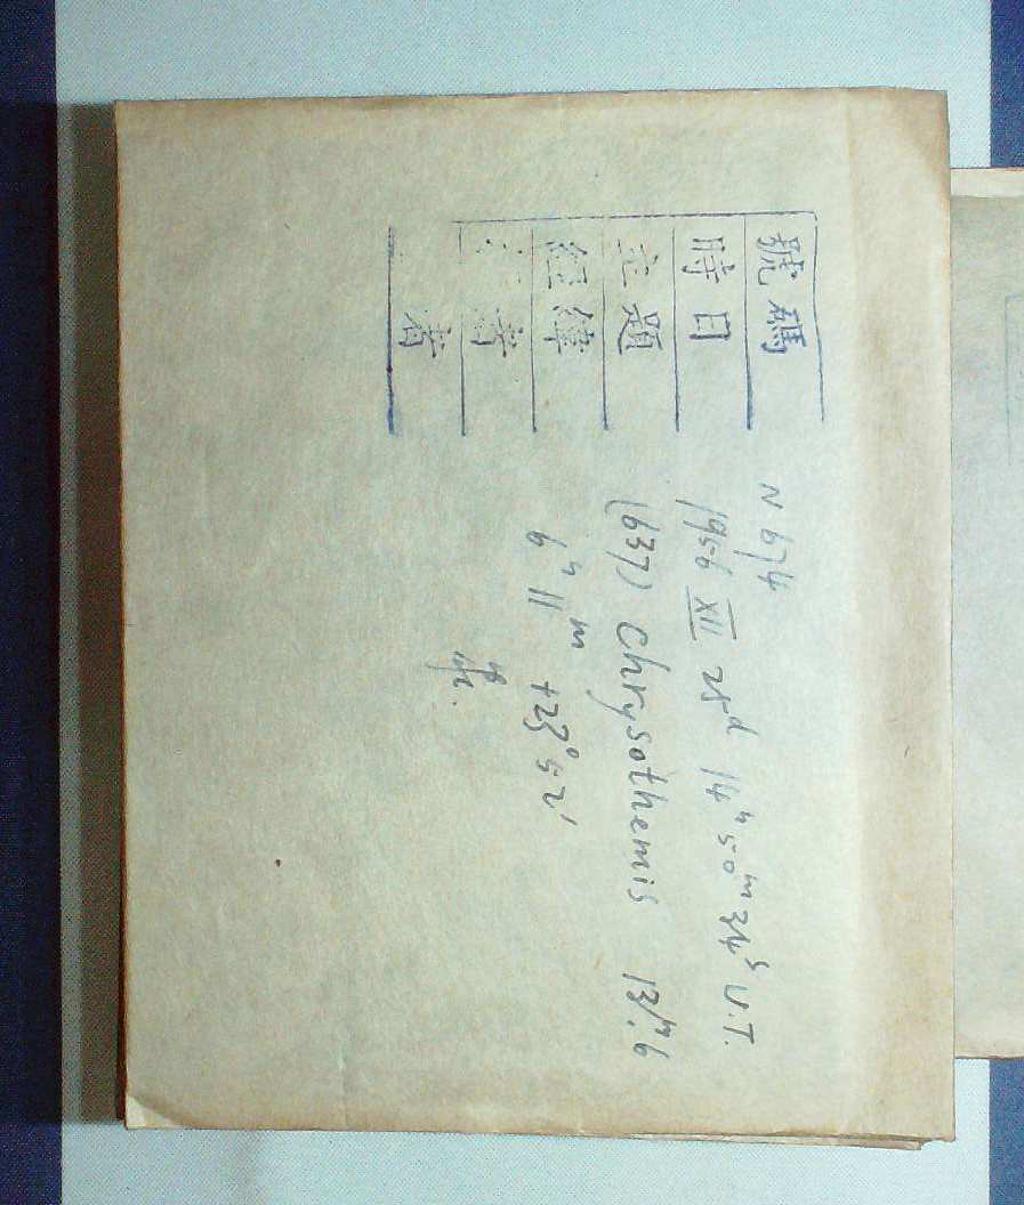 號碼 N 674
時日 1956 XII 25ᵈ 14ʰ 50ᵐ 34ˢ U.T.
主題 (637) Chrysothemis 13ᵐ.6
經緯 6ʰ 11ᵐ +23° 52'
者
者